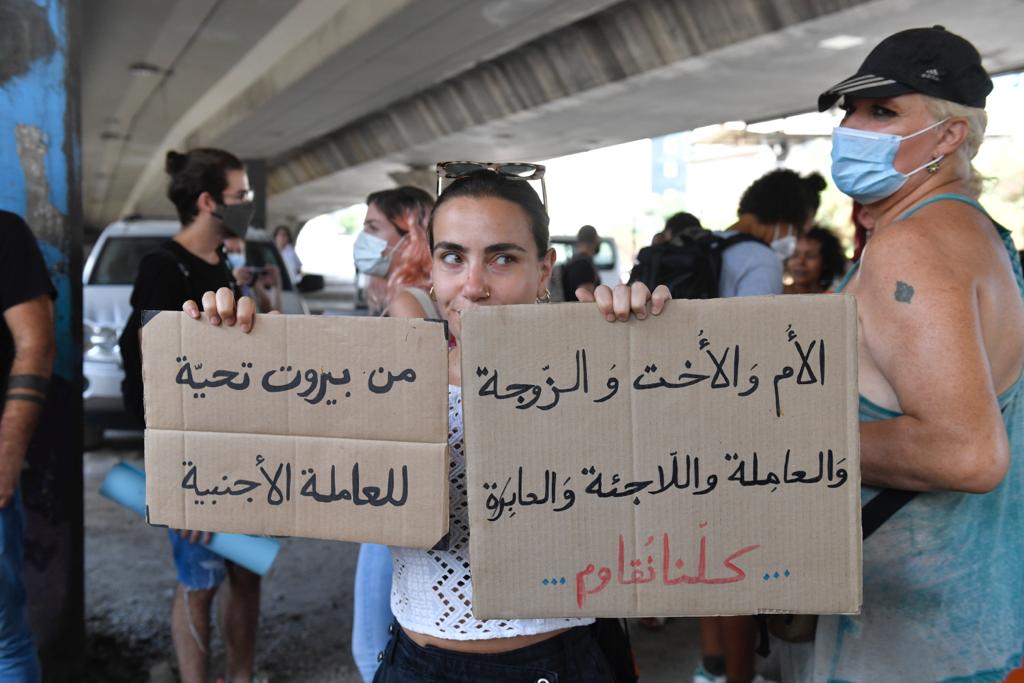 من بيروت تحيّة
للعاملة الأجنبية
الأم وَالأُخت وَ الزّوجة
وَالعامِلة واللّاجئة وَالعابِرَة
... كلّنا نُقاوم ...
adidas